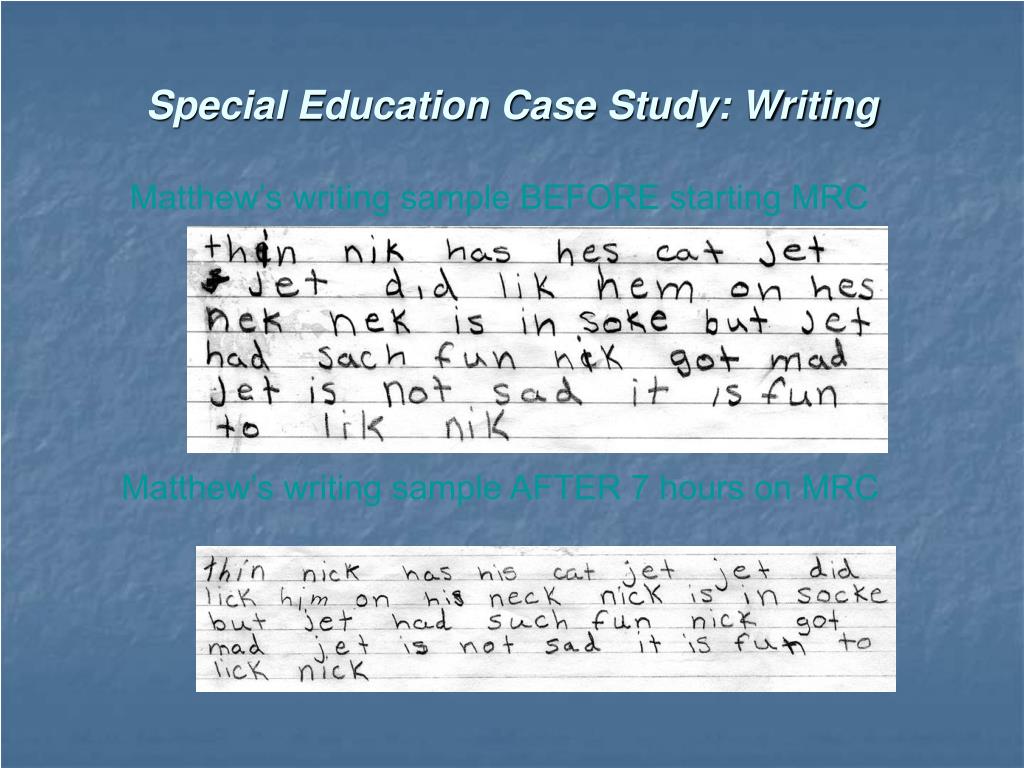 Special Education Case Study: Writing
Matthew's writing sample BEFORE starting MRC
thin nik has hes cat jet
jet did lik hem on hes
nek nek is in soke but jet
had sach fun nik got mad
jet is not sad it is fun
to lik nik
Matthew's writing sample AFTER 7 hours on MRC
thin nick has his cat jet jet did
lick him on his neck nick is in socke
but jet had such fun nick got
mad jet is not sad it is fun to
lick nick